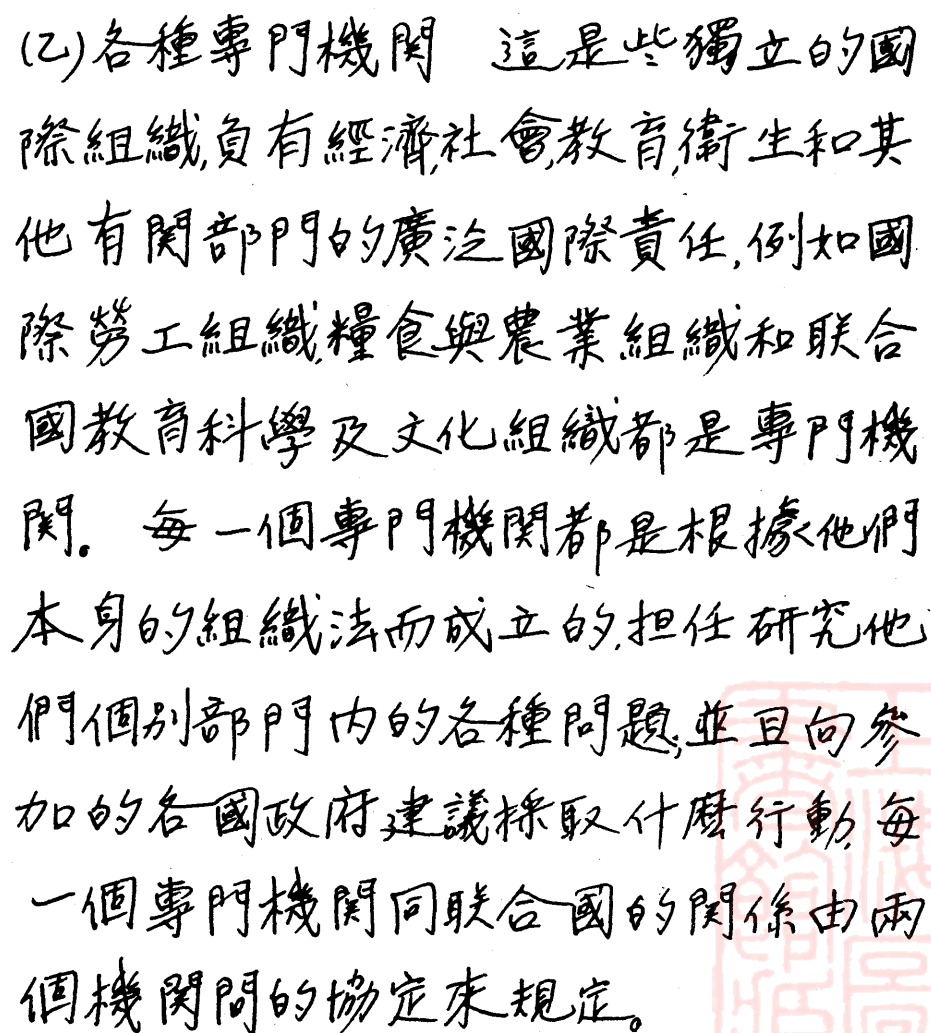 (乙)各種專門機関　這是些獨立的國
際組織,負有經濟,社會,教育,衛生和其
他有関部門的廣泛國際責任,例如國
際勞工組織,糧食與農業組織和联合
國教育科學及文化組織都是專門機
関。　每一個專門機関都是根據他們
本身的組織法而成立的,担任研究他
們個別部門内的各種問題;並且向參
加的各國政府建議採取什麽行動,每
一個專門機関同联合國的関係由兩
個機関間的協定來規定。